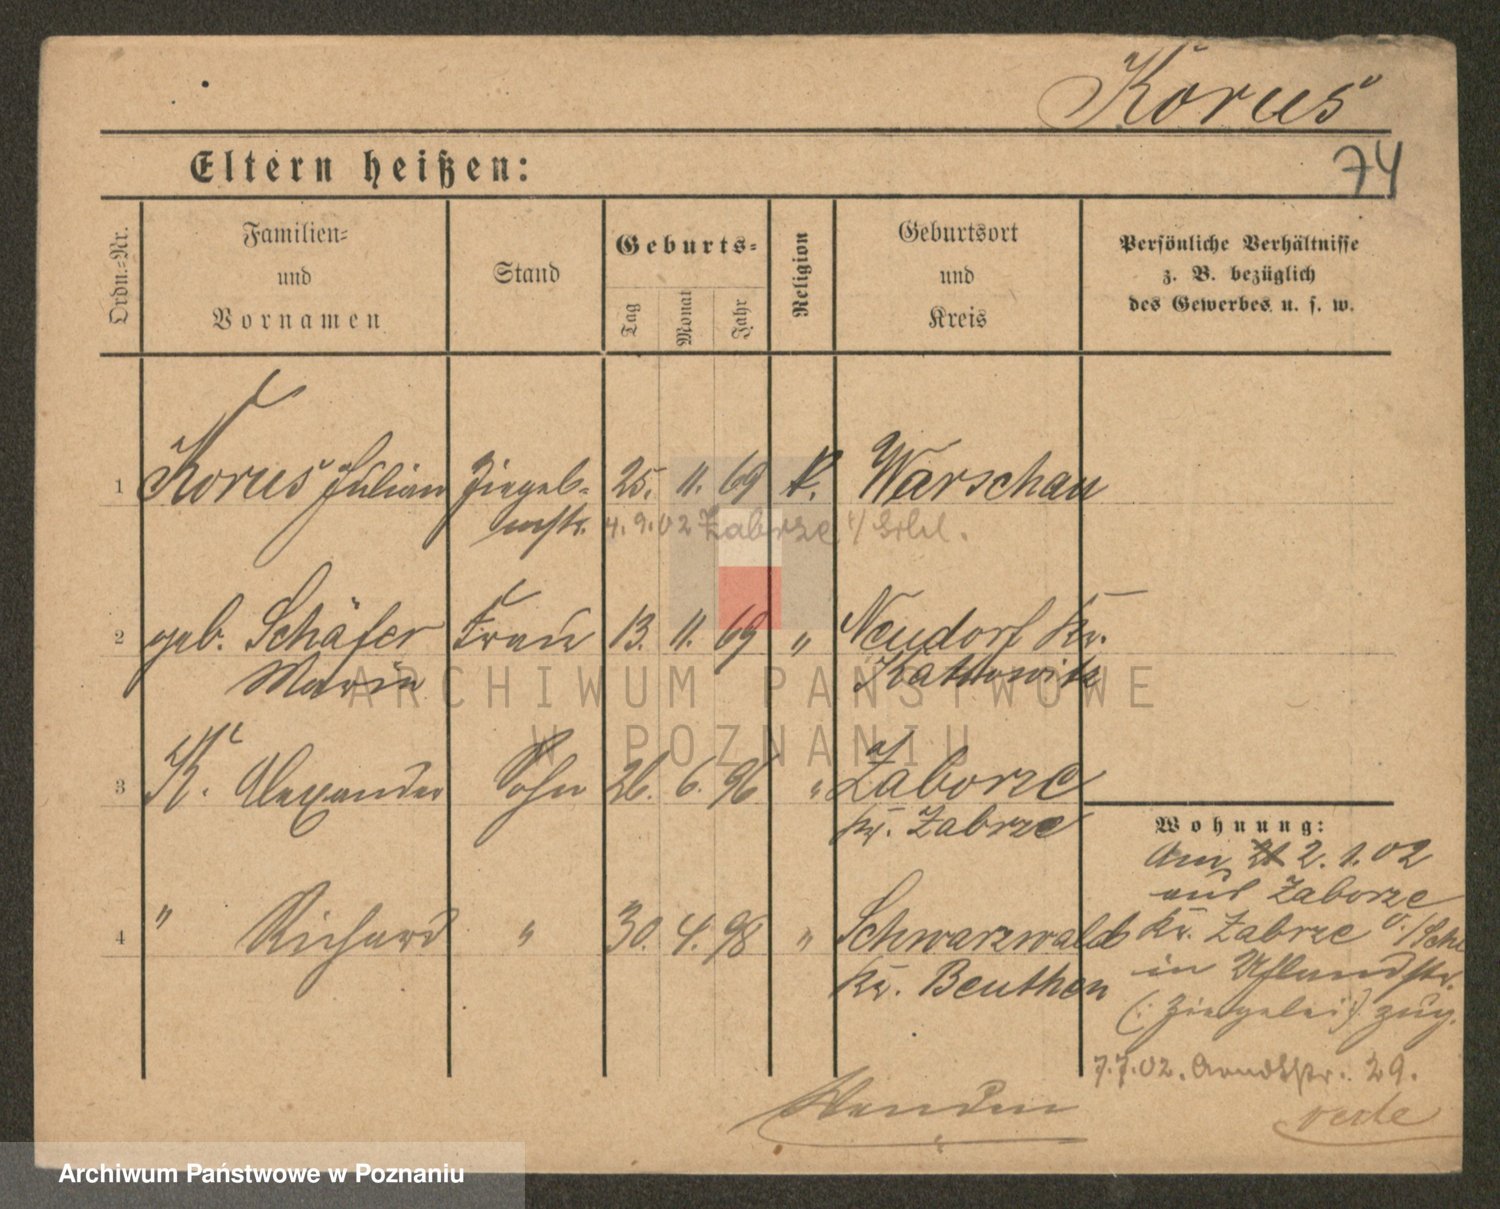 Korus
74
Eltern heißen:
Ordn.-Nr.
Familien-
und
Vornamen
Stand
Geburts-
Tag
Monat
Jahr
Religion
Geburtsort
und
Kreis
Persönliche Verhältnisse
z. B. bezüglich
des Gewerbes u. s. w.
1 Korus Julian Ziegel- 25. 11. 69 k. Warschau
mstr. 4.9.02 Zabrze
2 geb. Schäfer Frau 13. 11. 69 " Neudorf Kr.
Marie Kattowitz
3 K. Alexander Sohn 26. 6. 96 " Zaborze
Kr. Zabrze
4 " Richard " 30. 4. 98 " Schwarzwald
Kr. Beuthen
Wohnung:
Am 2.1.02
aus Zaborze
Kr. Zabrze O./Schl
in Uhlandstr.
(: Ziegelei :) zug.
7.7.02. Arndtstr. 29.
Wenden
verte
ARCHIWUM PAŃSTWOWE
W POZNANIU
Archiwum Państwowe w Poznaniu